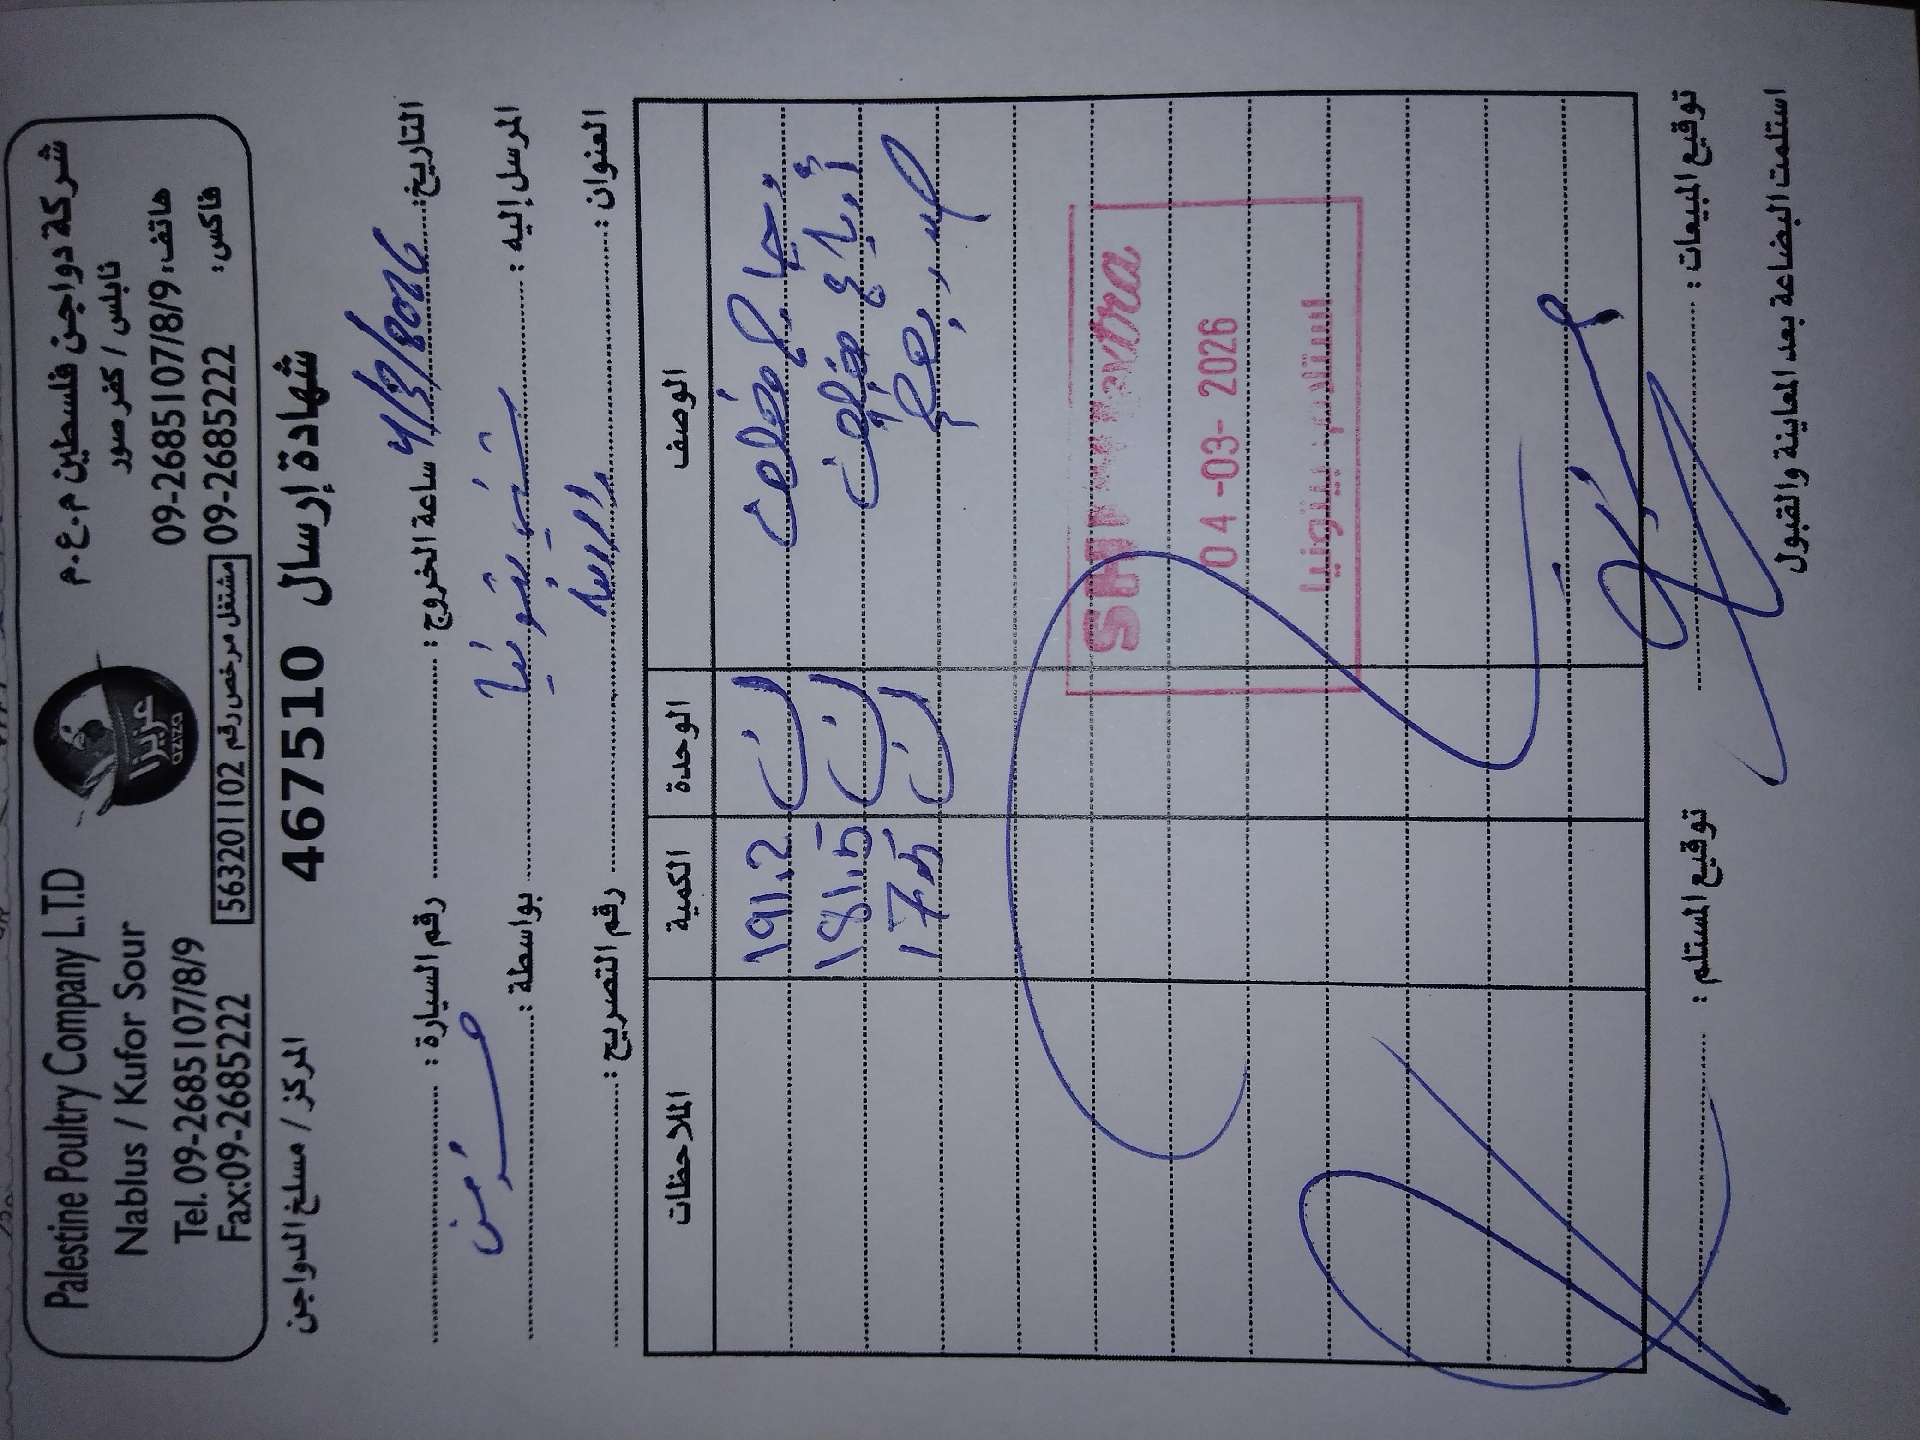 شركة دواجن فلسطين م.ع.م
نابلس / كفر صور
هاتف: 09-2685107/8/9
فاكس: 09-2685222
مشتغل مرخص رقم 563201102
عزيزا
aziza
Palestine Poultry Company L.T.D
Nablus / Kufor Sour
Tel. 09-2685107/8/9
Fax:09-2685222
شهادة إرسال 467510
المركز / مسلخ الدواجن
التاريخ: 4/3/2026 ساعة الخروج: رقم السيارة:
المرسل إليه: شني بيتونيا بواسطة:
العنوان: رام الله رقم التصريح:
الوصف الوحدة الكمية الملاحظات
دجاج مغلف ك 191.2
أرباع مغلف ك 181.5
ك 175
SHINI extra
04-03-2026
استلام بيتونيا
توقيع المبيعات: توقيع المستلم:
استلمت البضاعة بعد المعاينة والقبول